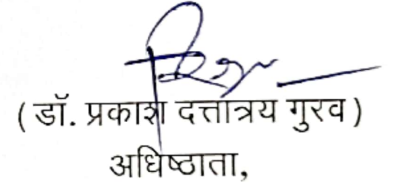 (डॉ. प्रकाश दत्तात्रय गुरव)
अधिष्ठाता,